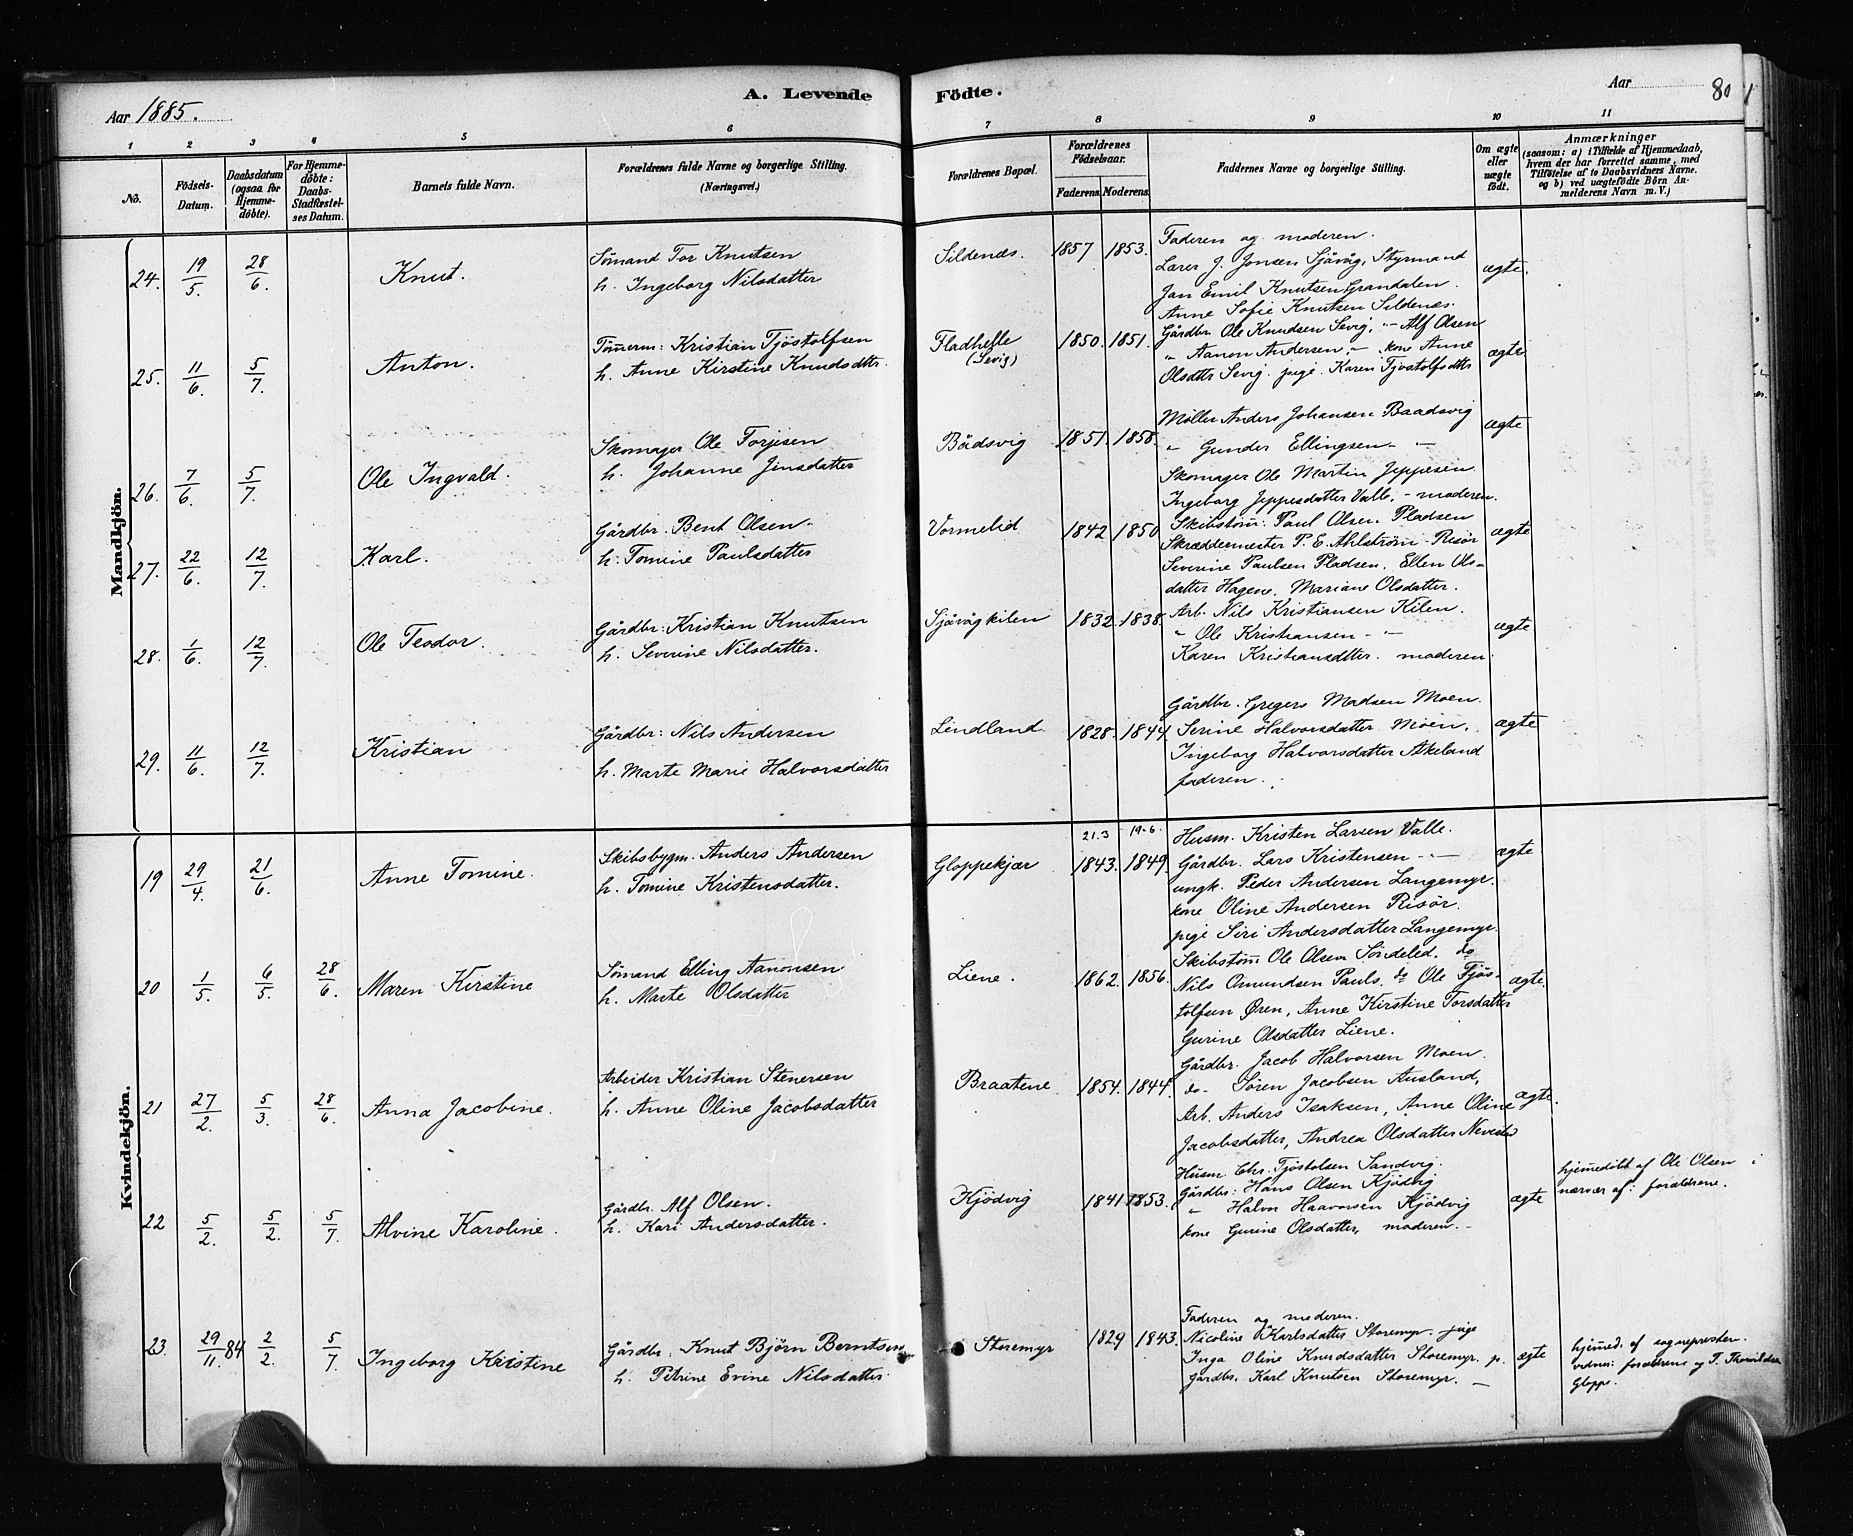 Aar 1885.
A. Levende Födte.
Aar 80
1 2 3 4 5 6 7 8 9 10 11
No.
Födsels-Datum.
Daabsdatum (ogsaa for Hjemmedöbte).
For Hjemmedöbte: Daabs-Stadfæstelses Datum.
Barnets fulde Navn.
Forældrenes fulde Navne og borgerlige Stilling. (Næringsvei.)
Forældrenes Bopæl.
Forældrenes Födselsaar.
Faderens. Moderens.
Faddernes Navne og borgerlige Stilling.
Om ægte eller uægte födt.
Anmærkninger
(saasom: a) i Tilfælde af Hjemmedaab, hvem der har forrettet samme, med Tilföielse af to Daabsvidners Navne, og b) ved uægtefödte Börn Anmelderens Navn m. V.)
Mandkjön.
24. 19/5. 28/6. Knut.
Sömand Tor Knutsen
h. Ingeborg Nilsdatter
Sildenæs. 1857 1853.
Faderen og moderen.
Lærer J. Jonsen Sjåvåg, Styrmand
Jan Emil Knutsen Grandalen.
Anne Sofie Knutsen Sildenæs.
ægte.
25. 11/6. 5/7. Anton.
Tömerm: Kristian Tjöstolfsen
h. Anne Kirstine Knudsdttr.
Fladhelle (Sevig) 1850. 1851.
Gårdbr. Ole Knudsen Sevig, "– Alf Olsen
" Aanon Andersen, – kone Anne
Olsdttr Sevig. pige Karen Tjöstolfsdttr
ægte
26. 7/6. 5/7. Ole Ingvald.
Skomager Ole Torjesen
h. Johanne Jensdatter
Bådsvig 1851. 1858.
Möller Anders Johansen Baadsvig
" Gunder Ellingsen – "–
Skomager Ole Martin Jeppesen.
Ingeborg Jeppesdatter Valle. – moderen.
ægte
27. 22/6. 12/7. Karl.
Gårdbr. Bent Olsen –
h. Tomine Paulsdatter
Vormelid 1842 1850
Skibstöm: Paul Olsen Pladsen
Skræddermester P. E. Ahlström Risör
Severine Paulsen Pladsen. Ellen Ols-
datter Hagene. Mariane Olsdatter.
ægte
28. 1/6. 12/7. Ole Teodor.
Gårdbr: Kristian Knutsen
h. Severine Nilsdatter.
Sjåvågkilen 1832. 1838.
Arb. Nils Kristiansen Kilen.
" Ole Kristiansen – "–
Karen Kristiansdtter. moderen.
ægte
29. 11/6. 12/7. Kristian
Gårdbr: Nils Andersen
h. Marte Marie Halvorsdatter
Lindland 1828. 1844
Gårdbr. Gregers Madsen Moen.
Serine Halvorsdatter Moen.
Ingeborg Halvorsdatter Akeland
faderen.
ægte
Kvindekjön.
19 29/4. 21/6. Anne Tomine.
Skibsbygm. Anders Andersen
h. Tomine Kristensdatter.
Gloppekjær 21.3 1843. 19-6. 1849.
Husm. Kristen Larsen Valle.
Gårdbr. Lars Kristensen – "–
ungk. Peder Andersen Langemyr.
kone Oline Andersen Risör.
pige Siri Andersdatter Langemyr.
ægte
20 1/5. 6/5. 28/6. Maren Kirstine
Sömand Elling Aanonsen
h. Marte Olsdatter
Liene. 1862. 1856.
Skibstöm Ole Olsen Söndeled. do
Nils Omundsen Pauls. do Ole Tjös-
tolfsen Øren, Anne Kirstine Torsdatter
Gurine Olsdatter Liene.
ægte.
21 27/2. 5/3. 28/6. Anna Jacobine.
Arbeider Kristian Stenersen
h. Anne Oline Jacobsdatter
Braatene 1854. 1844.
Gårdbr. Jacob Halvorsen Moen.
do – Sören Jacobsen Ausland,
Arb. Anders Isaksen, Anne Oline
Jacobsdatter, Andrea Olsdatter
ægte.
22 5/2. 5/2. 5/7. Alvine Karoline.
Gårdbr. Alf Olsen.
h. Kari Andersdatter.
Kjödvig 1841 1853.
Husm. Chr. Tjöstolsen Sandvig.
Gårdbr: Hans Olsen Kjödvig
" Halvor Haavorsen Kjödvig
kone Gurine Olsdatter, moderen. –
ægte
hjemedöbt af Ole Olsen i
nærvær af: forældrene.
23. 29/11. 84 2/2. 5/7. Ingeborg Kristine
Gårdbr. Knut Björn Berntsen
h. Petrine Evine Nilsdatter.
Storemyr 1829 1843.
Faderen og moderen.
Nicoline Karlsdatter Storemyr. pige
Inga Oline Knudsdatter Storemyr. p.
Gårdbr. Karl Knutsen Storemyr. –
ægte
hjemed. af sognepresten.
vidner: forældrene og T.
Gloppe.